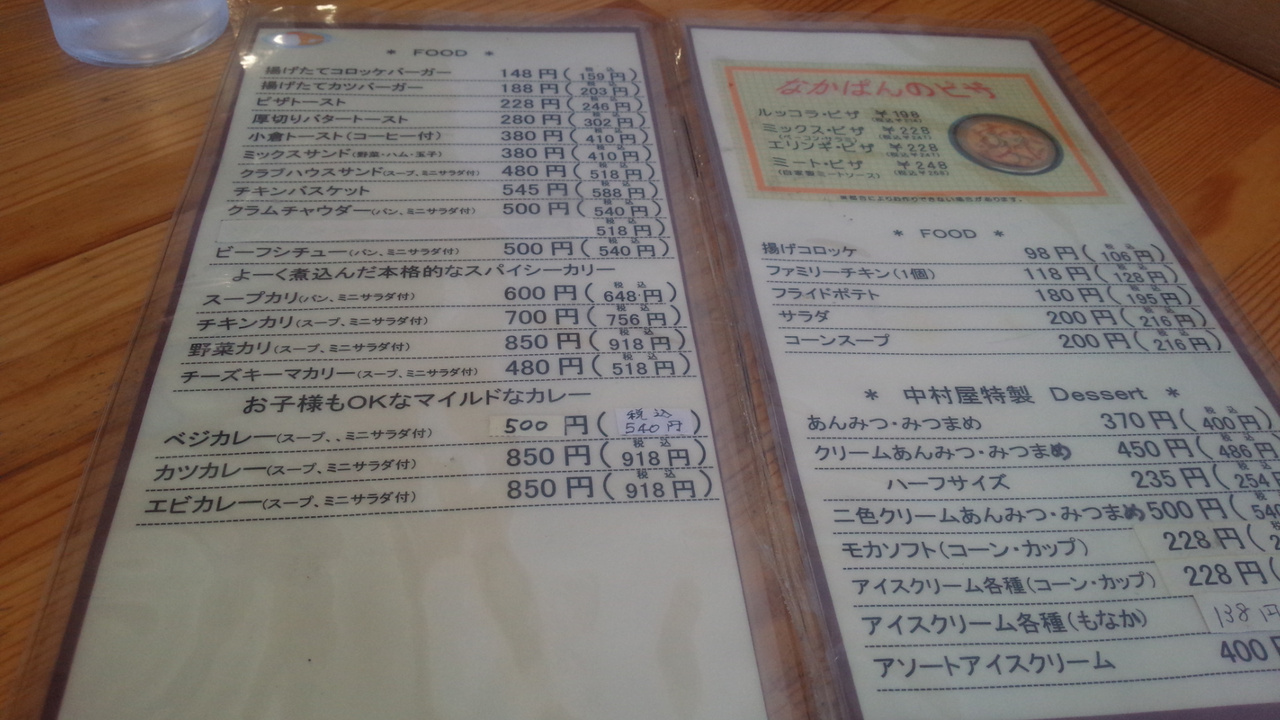 * FOOD *
揚げたてコロッケバーガー 148円(税込159円)
揚げたてカツバーガー 188円(税込203円)
ピザトースト 228円(税込246円)
厚切りバタートースト 280円(税込302円)
小倉トースト(コーヒー付) 380円(税込410円)
ミックスサンド(野菜・ハム・玉子) 380円(税込410円)
クラブハウスサンド(スープ、ミニサラダ付) 480円(税込518円)
チキンバスケット 545円(税込588円)
クラムチャウダー(パン、ミニサラダ付) 500円(税込540円)
税込518円
ビーフシチュー(パン、ミニサラダ付) 500円(税込540円)
よーく煮込んだ本格的なスパイシーカリー
スープカリ(パン、ミニサラダ付) 600円(税込648円)
チキンカリ(スープ、ミニサラダ付) 700円(税込756円)
野菜カリ(スープ、ミニサラダ付) 850円(税込918円)
チーズキーマカリー(スープ、ミニサラダ付) 480円(税込518円)
お子様もOKなマイルドなカレー
ベジカレー(スープ、、ミニサラダ付) 500円(税込540円)
カツカレー(スープ、ミニサラダ付) 850円(税込918円)
エビカレー(スープ、ミニサラダ付) 850円(税込918円)
なかぱんのピザ
ルッコラ・ピザ ¥198
ミックス・ピザ ¥228
エリンギ・ピザ ¥228
ミート・ピザ ¥248
(自家製ミートソース)
* FOOD *
揚げコロッケ 98円(税込106円)
ファミリーチキン(1個) 118円(税込128円)
フライドポテト 180円(税込195円)
サラダ 200円(税込216円)
コーンスープ 200円(税込216円)
* 中村屋特製 Dessert *
あんみつ・みつまめ 370円(税込400円)
クリームあんみつ・みつまめ 450円(税込486円
ハーフサイズ 235円(税込254円
二色クリームあんみつ・みつまめ 500円(税540
モカソフト(コーン・カップ) 228円(2
アイスクリーム各種(コーン・カップ) 228円(
アイスクリーム各種(もなか) 138円
アソートアイスクリーム 400円